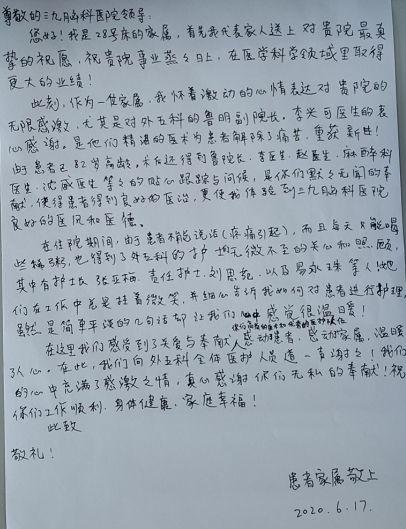 尊敬的三九脑科医院领导:
您好!我是28号床的家属,首先我代表家人送上对贵院最真
挚的祝愿,祝贵院事业蒸蒸日上,在医学科学领域里取得
更大的业绩!
此刻,作为一隻家属,我怀着激动的心情表达对贵院的
无限感激,尤其是对外五科的鲁明副院长,李兴可医生的衷
心感谢。是他们精湛的医术为患者解除了痛苦,重获新生!
由于患者已82岁高龄,术后还得到鲁院长,李医生,赵医生,麻醉科
医生,沈成医生等等的贴心跟踪与问候,是你们默默无闻的奉
献,使得患者得到良好的医治,更使我体验到三九脑科医院
良好的医风和医德。
在住院期间,由于患者不能说话(疼痛引起),而且每天只能喝
些稀粥,也得到了外五科的护士们无微不至的关心和照顾,
其中有护士长张亚梅,责任护士刘思乾,以及易永珠等人,他
们在工作中总是挂着微笑,并细心告诉我如何对患者进行护理,
虽然是简单平淡的几句话却让我们心中感觉很温暖!
在这里我们感受到了关爱与奉献,感动患者,感动家属,温暖
了人心。在此,我们向外五科全体医护人员道一声谢谢!我们
的心中充满了感激之情,真心感谢你们无私的奉献!祝
你们工作顺利,身体健康,家庭幸福!
此致
敬礼!
患者家属敬上
2020.6.17.